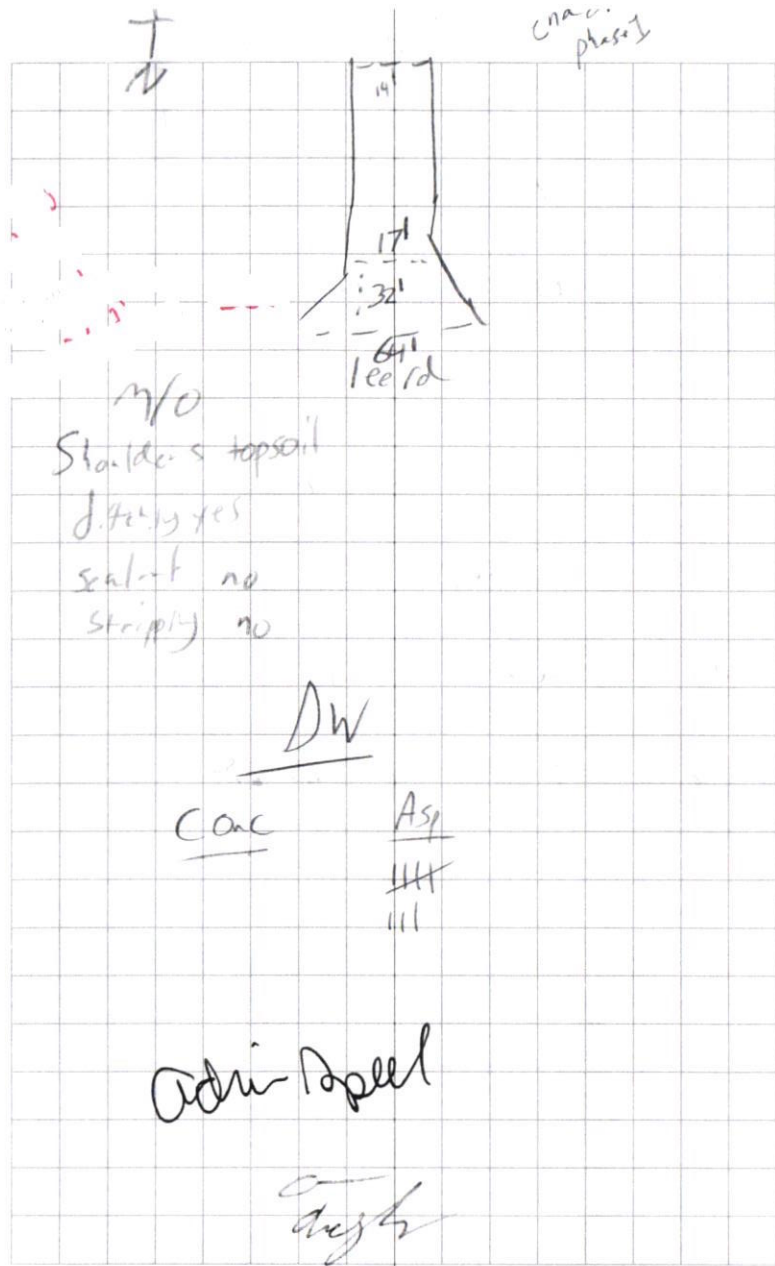 N
phase 1
14'
17'
32'
64'
lee rd
m/o
Shoulders topsoil
ditching yes
sealant no
stripping no
DW
Conc Asp